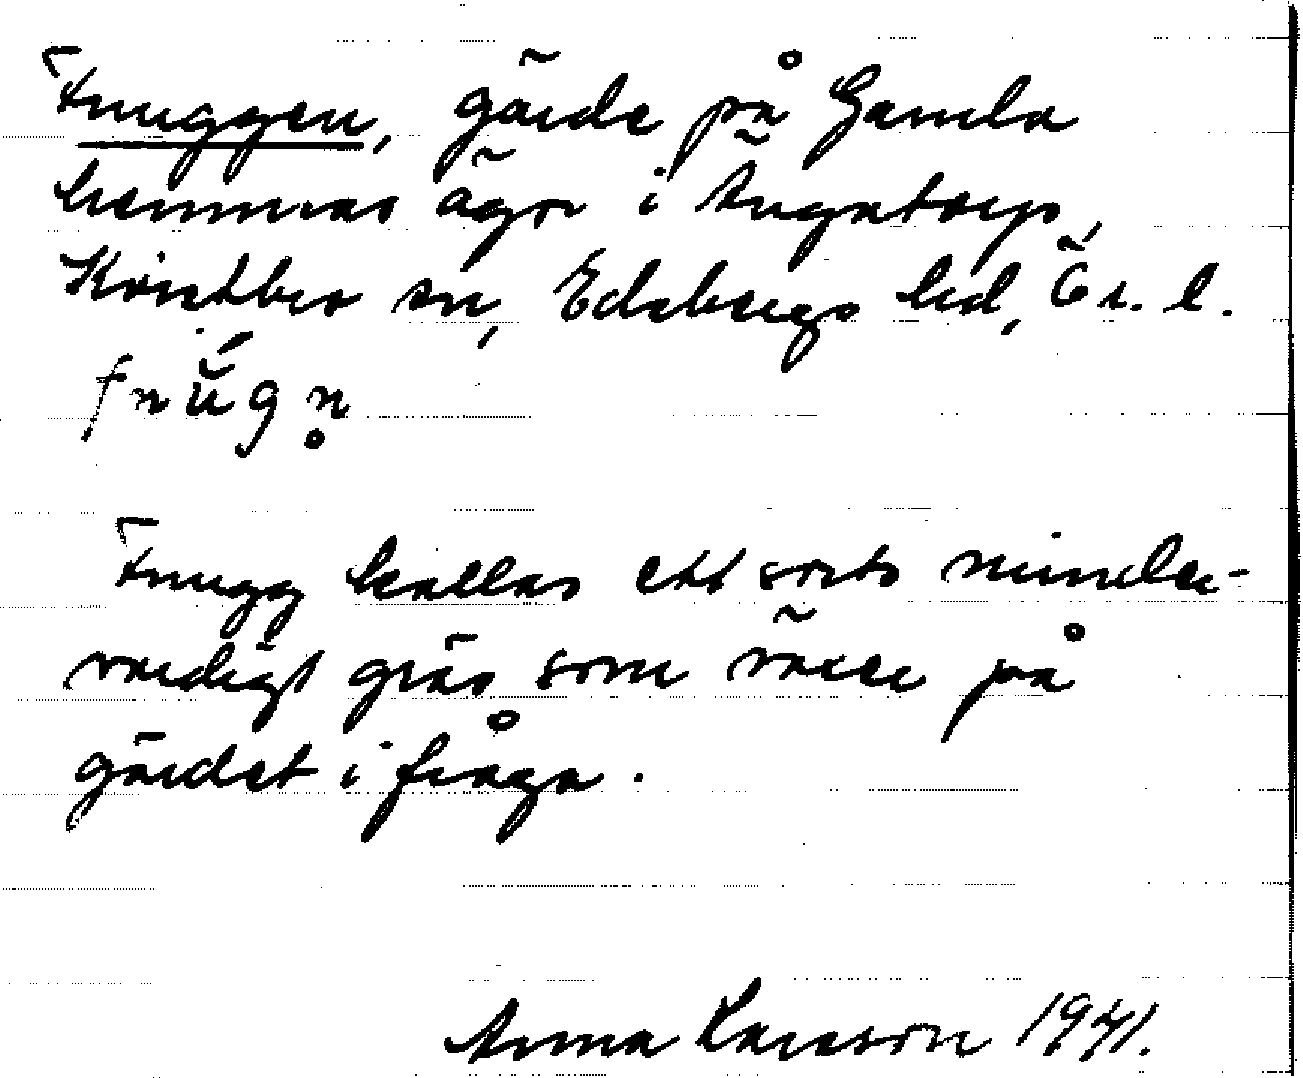 Fnuggen, gärde på Gamla
hemmas ägor i Ängatorp,
Kvistbro sn, Edsbergs hd, Ör. l.
fnug̀n̥
Fnugg kallas ett sorts minder-
värdigt gräs som växer på
gärdet i fråga.
Anna Larsson 1941.